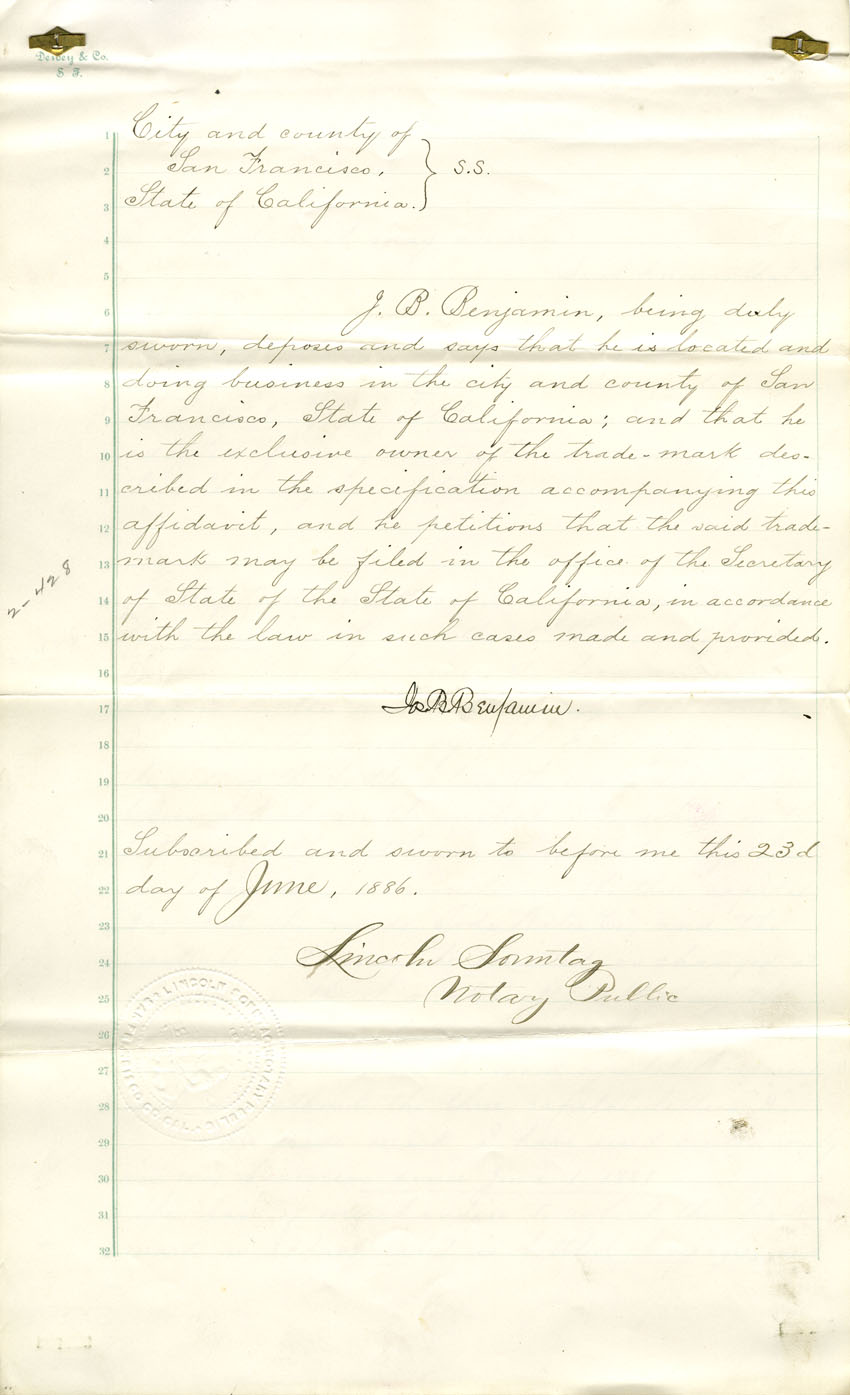 Dewey & Co.
S. F.
1 City and county of
2 San Francisco, } S.S.
3 State of California.
4
5
6 J. B. Benjamin, being duly
7 sworn, deposes and says that he is located and
8 doing business in the city and county of San
9 Francisco, State of California; and that he
10 is the exclusive owner of the trade-mark des-
11 cribed in the specification accompanying this
12 affidavit, and he petitions that the said trade-
13 mark may be filed in the office of the Secretary
14 of State of the State of California, in accordance
15 with the law in such cases made and provided.
2-428
16
17 Jos B Benjamin.
18
19
20
21 Subscribed and sworn to before me this 23d
22 day of June, 1886.
23
24 Lincoln Sonntag
25 Notary Public
26
27
28
29
30
31
32
LINCOLN SONNTAG NOTARY PUBLIC